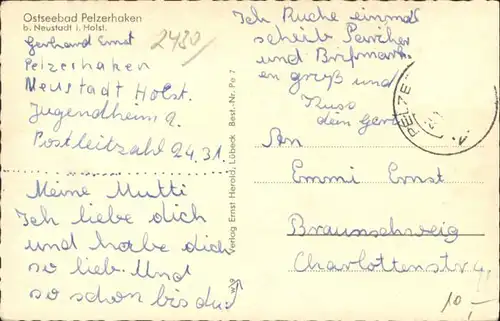 Ostseebad Pelzerhaken
b. Neustadt i. Holst.
Gerhard Ernst
2430
Pelzerhaken
Neustadt Holst.
Jugendheim 2.
Postleitzahl 24.31.
Meine Mutti
Ich liebe dich
und habe dich
so lieb. Und
so schon bis du
Verlag Ernst Herold, Lübeck Best.-Nr. Pe 7
Ich
einmal
scheib
und Brifmark
en gruß und
Kuss
dein Gerd
PELZE
An
Emmi Ernst
Braunschweig
Charlottenstr 4
10,-